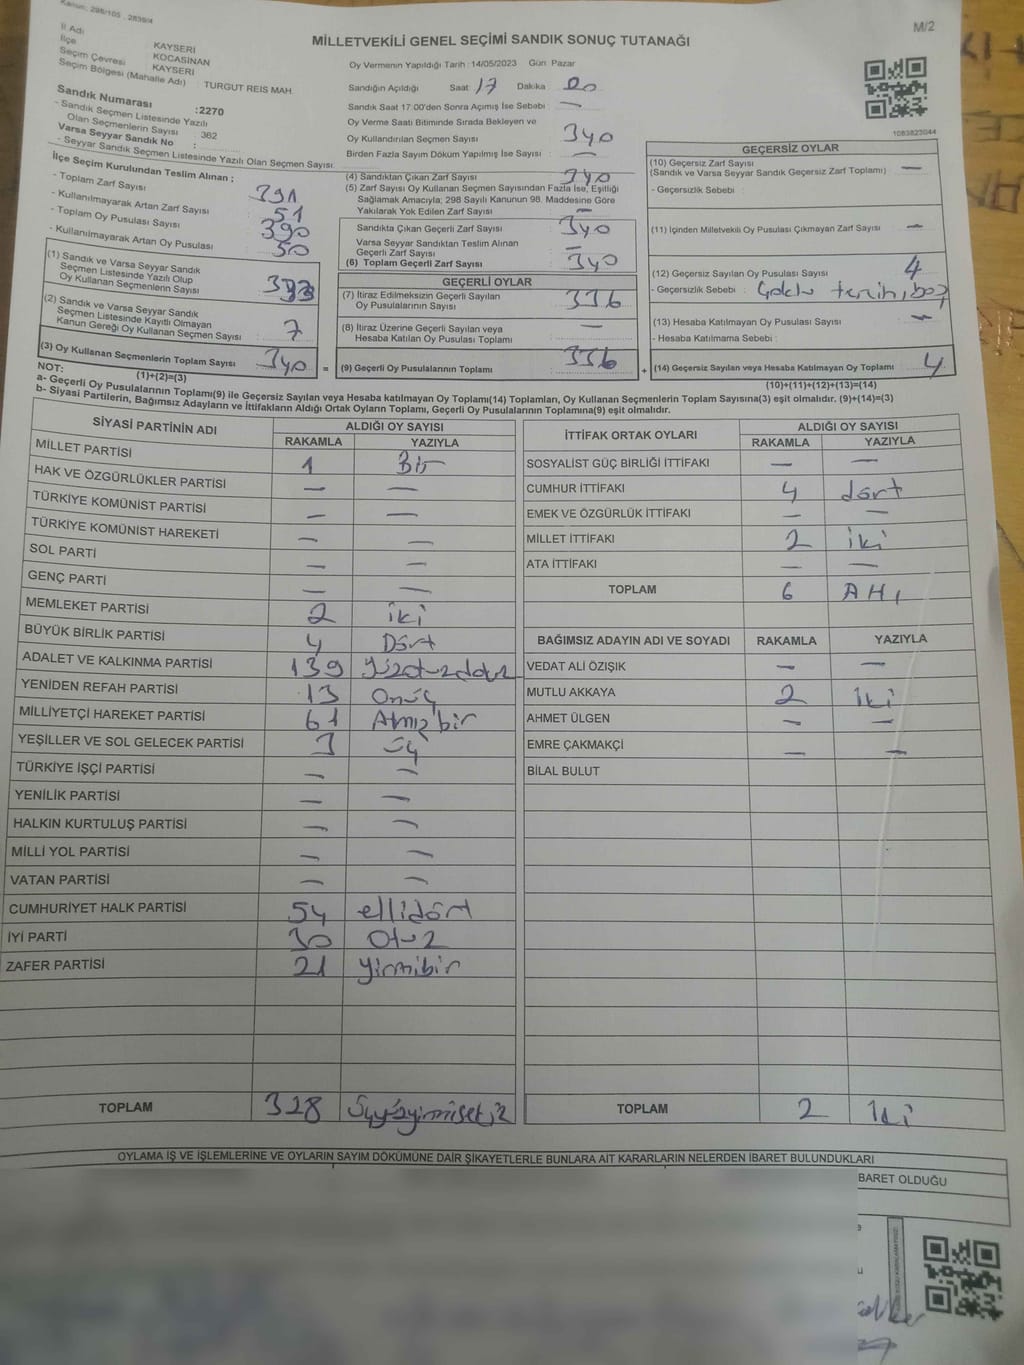 Kanun: 298/105 . 2839/4
M/2
İl Adı KAYSERİ
İlçe KOCASİNAN
Seçim Çevresi KAYSERİ
Seçim Bölgesi (Mahalle Adı) TURGUT REIS MAH.
Sandık Numarası :2270
- Sandık Seçmen Listesinde Yazılı
Olan Seçmenlerin Sayısı 362
Varsa Seyyar Sandık No :
- Seyyar Sandık Seçmen Listesinde Yazılı Olan Seçmen Sayısı:
MİLLETVEKİLİ GENEL SEÇİMİ SANDIK SONUÇ TUTANAĞI
Oy Vermenin Yapıldığı Tarih : 14/05/2023 Gün Pazar
Sandığın Açıldığı Saat 17 Dakika 20
Sandık Saat 17.00'den Sonra Açımış İse Sebebi —
Oy Verme Saati Bitiminde Sırada Bekleyen ve
Oy Kullandırılan Seçmen Sayısı 340
Birden Fazla Sayım Döküm Yapılmış İse Sayısı : —
1083823044
İlçe Seçim Kurulundan Teslim Alınan ;
- Toplam Zarf Sayısı 391
- Kullanılmayarak Artan Zarf Sayısı 51
- Toplam Oy Pusulası Sayısı 390
- Kullanılmayarak Artan Oy Pusulası 50
(1) Sandık ve Varsa Seyyar Sandık
Seçmen Listesinde Yazılı Olup
Oy Kullanan Seçmenlerin Sayısı
(2) Sandık ve Varsa Seyyar Sandık
Seçmen Listesinde Kayıtlı Olmayan
Kanun Gereği Oy Kullanan Seçmen Sayısı 7
(3) Oy Kullanan Seçmenlerin Toplam Sayısı 340 =
(1)+(2)=(3)
(4) Sandıktan Çıkan Zarf Sayısı 340
(5) Zarf Sayısı Oy Kullanan Seçmen Sayısından Fazla İse, Eşitliği
Sağlamak Amacıyla; 298 Sayılı Kanunun 98. Maddesine Göre
Yakılarak Yok Edilen Zarf Sayısı —
Sandıkta Çıkan Geçerli Zarf Sayısı 340
Varsa Seyyar Sandıktan Teslim Alınan
Geçerli Zarf Sayısı —
(6) Toplam Geçerli Zarf Sayısı 340
GEÇERLİ OYLAR
(7) İtiraz Edilmeksizin Geçerli Sayılan
Oy Pusulalarının Sayısı 336
(8) İtiraz Üzerine Geçerli Sayılan veya
Hesaba Katılan Oy Pusulası Toplamı —
(9) Geçerli Oy Pusulalarının Toplamı 336 +
GEÇERSİZ OYLAR
(10) Geçersiz Zarf Sayısı
(Sandık ve Varsa Seyyar Sandık Geçersiz Zarf Toplamı) —
- Geçersizlik Sebebi :
(11) İçinden Milletvekili Oy Pusulası Çıkmayan Zarf Sayısı —
(12) Geçersiz Sayılan Oy Pusulası Sayısı 4
- Geçersizlik Sebebi : tercih, boş
(13) Hesaba Katılmayan Oy Pusulası Sayısı —
- Hesaba Katılmama Sebebi :
(14) Geçersiz Sayılan veya Hesaba Katılmayan Oy Toplamı 4
(10)+(11)+(12)+(13)=(14)
NOT:
a- Geçerli Oy Pusulalarının Toplamı(9) ile Geçersiz Sayılan veya Hesaba katılmayan Oy Toplamı(14) Toplamları, Oy Kullanan Seçmenlerin Toplam Sayısına(3) eşit olmalıdır. (9)+(14)=(3)
b- Siyasi Partilerin, Bağımsız Adayların ve İttifakların Aldığı Ortak Oyların Toplamı, Geçerli Oy Pusulalarının Toplamına(9) eşit olmalıdır.
SİYASİ PARTİNİN ADI ALDIĞI OY SAYISI
RAKAMLA YAZIYLA
MİLLET PARTİSİ 1 Bir
HAK VE ÖZGÜRLÜKLER PARTİSİ — —
TÜRKİYE KOMÜNİST PARTİSİ — —
TÜRKİYE KOMÜNİST HAREKETİ — —
SOL PARTİ — —
GENÇ PARTİ — —
MEMLEKET PARTİSİ 2 iki
BÜYÜK BİRLİK PARTİSİ 4 Dört
ADALET VE KALKINMA PARTİSİ 139 yüzotuzdokuz
YENİDEN REFAH PARTİSİ 13 Onüç
MİLLİYETÇİ HAREKET PARTİSİ 61 Atmış bir
YEŞİLLER VE SOL GELECEK PARTİSİ 3 üç
TÜRKİYE İŞÇİ PARTİSİ — —
YENİLİK PARTİSİ — —
HALKIN KURTULUŞ PARTİSİ — —
MİLLİ YOL PARTİSİ — —
VATAN PARTİSİ — —
CUMHURİYET HALK PARTİSİ 54 ellidört
İYİ PARTİ 30 Otuz
ZAFER PARTİSİ 21 yirmibir
TOPLAM 328 üçyüzyirmisekiz
İTTİFAK ORTAK OYLARI ALDIĞI OY SAYISI
RAKAMLA YAZIYLA
SOSYALIST GÜÇ BİRLİĞİ İTTİFAKI — —
CUMHUR İTTİFAKI 4 dört
EMEK VE ÖZGÜRLÜK İTTİFAKI — —
MİLLET İTTİFAKI 2 iki
ATA İTTİFAKI — —
TOPLAM 6 Altı
BAĞIMSIZ ADAYIN ADI VE SOYADI RAKAMLA YAZIYLA
VEDAT ALİ ÖZIŞIK — —
MUTLU AKKAYA 2 iki
AHMET ÜLGEN — —
EMRE ÇAKMAKÇİ — —
BİLAL BULUT
TOPLAM 2 İki
OYLAMA İŞ VE İŞLEMLERİNE VE OYLARIN SAYIM DÖKÜMÜNE DAİR ŞİKAYETLERLE BUNLARA AİT KARARLARIN NELERDEN İBARET BULUNDUKLARI
BARET OLDUĞU